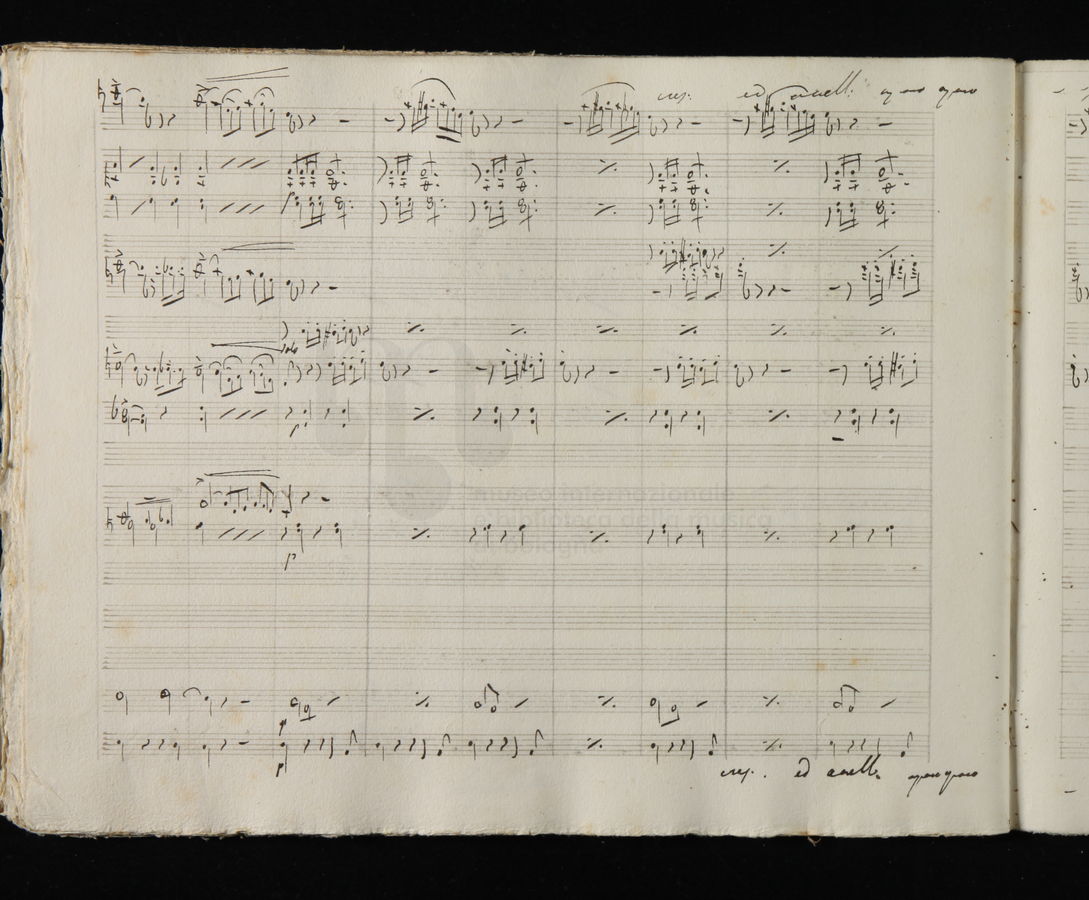 cres. ed accell. a poco a poco
Solo
p
museo internazionale
e biblioteca della musica
di bologna
p
p
p
cres. ed accell. a poco a poco